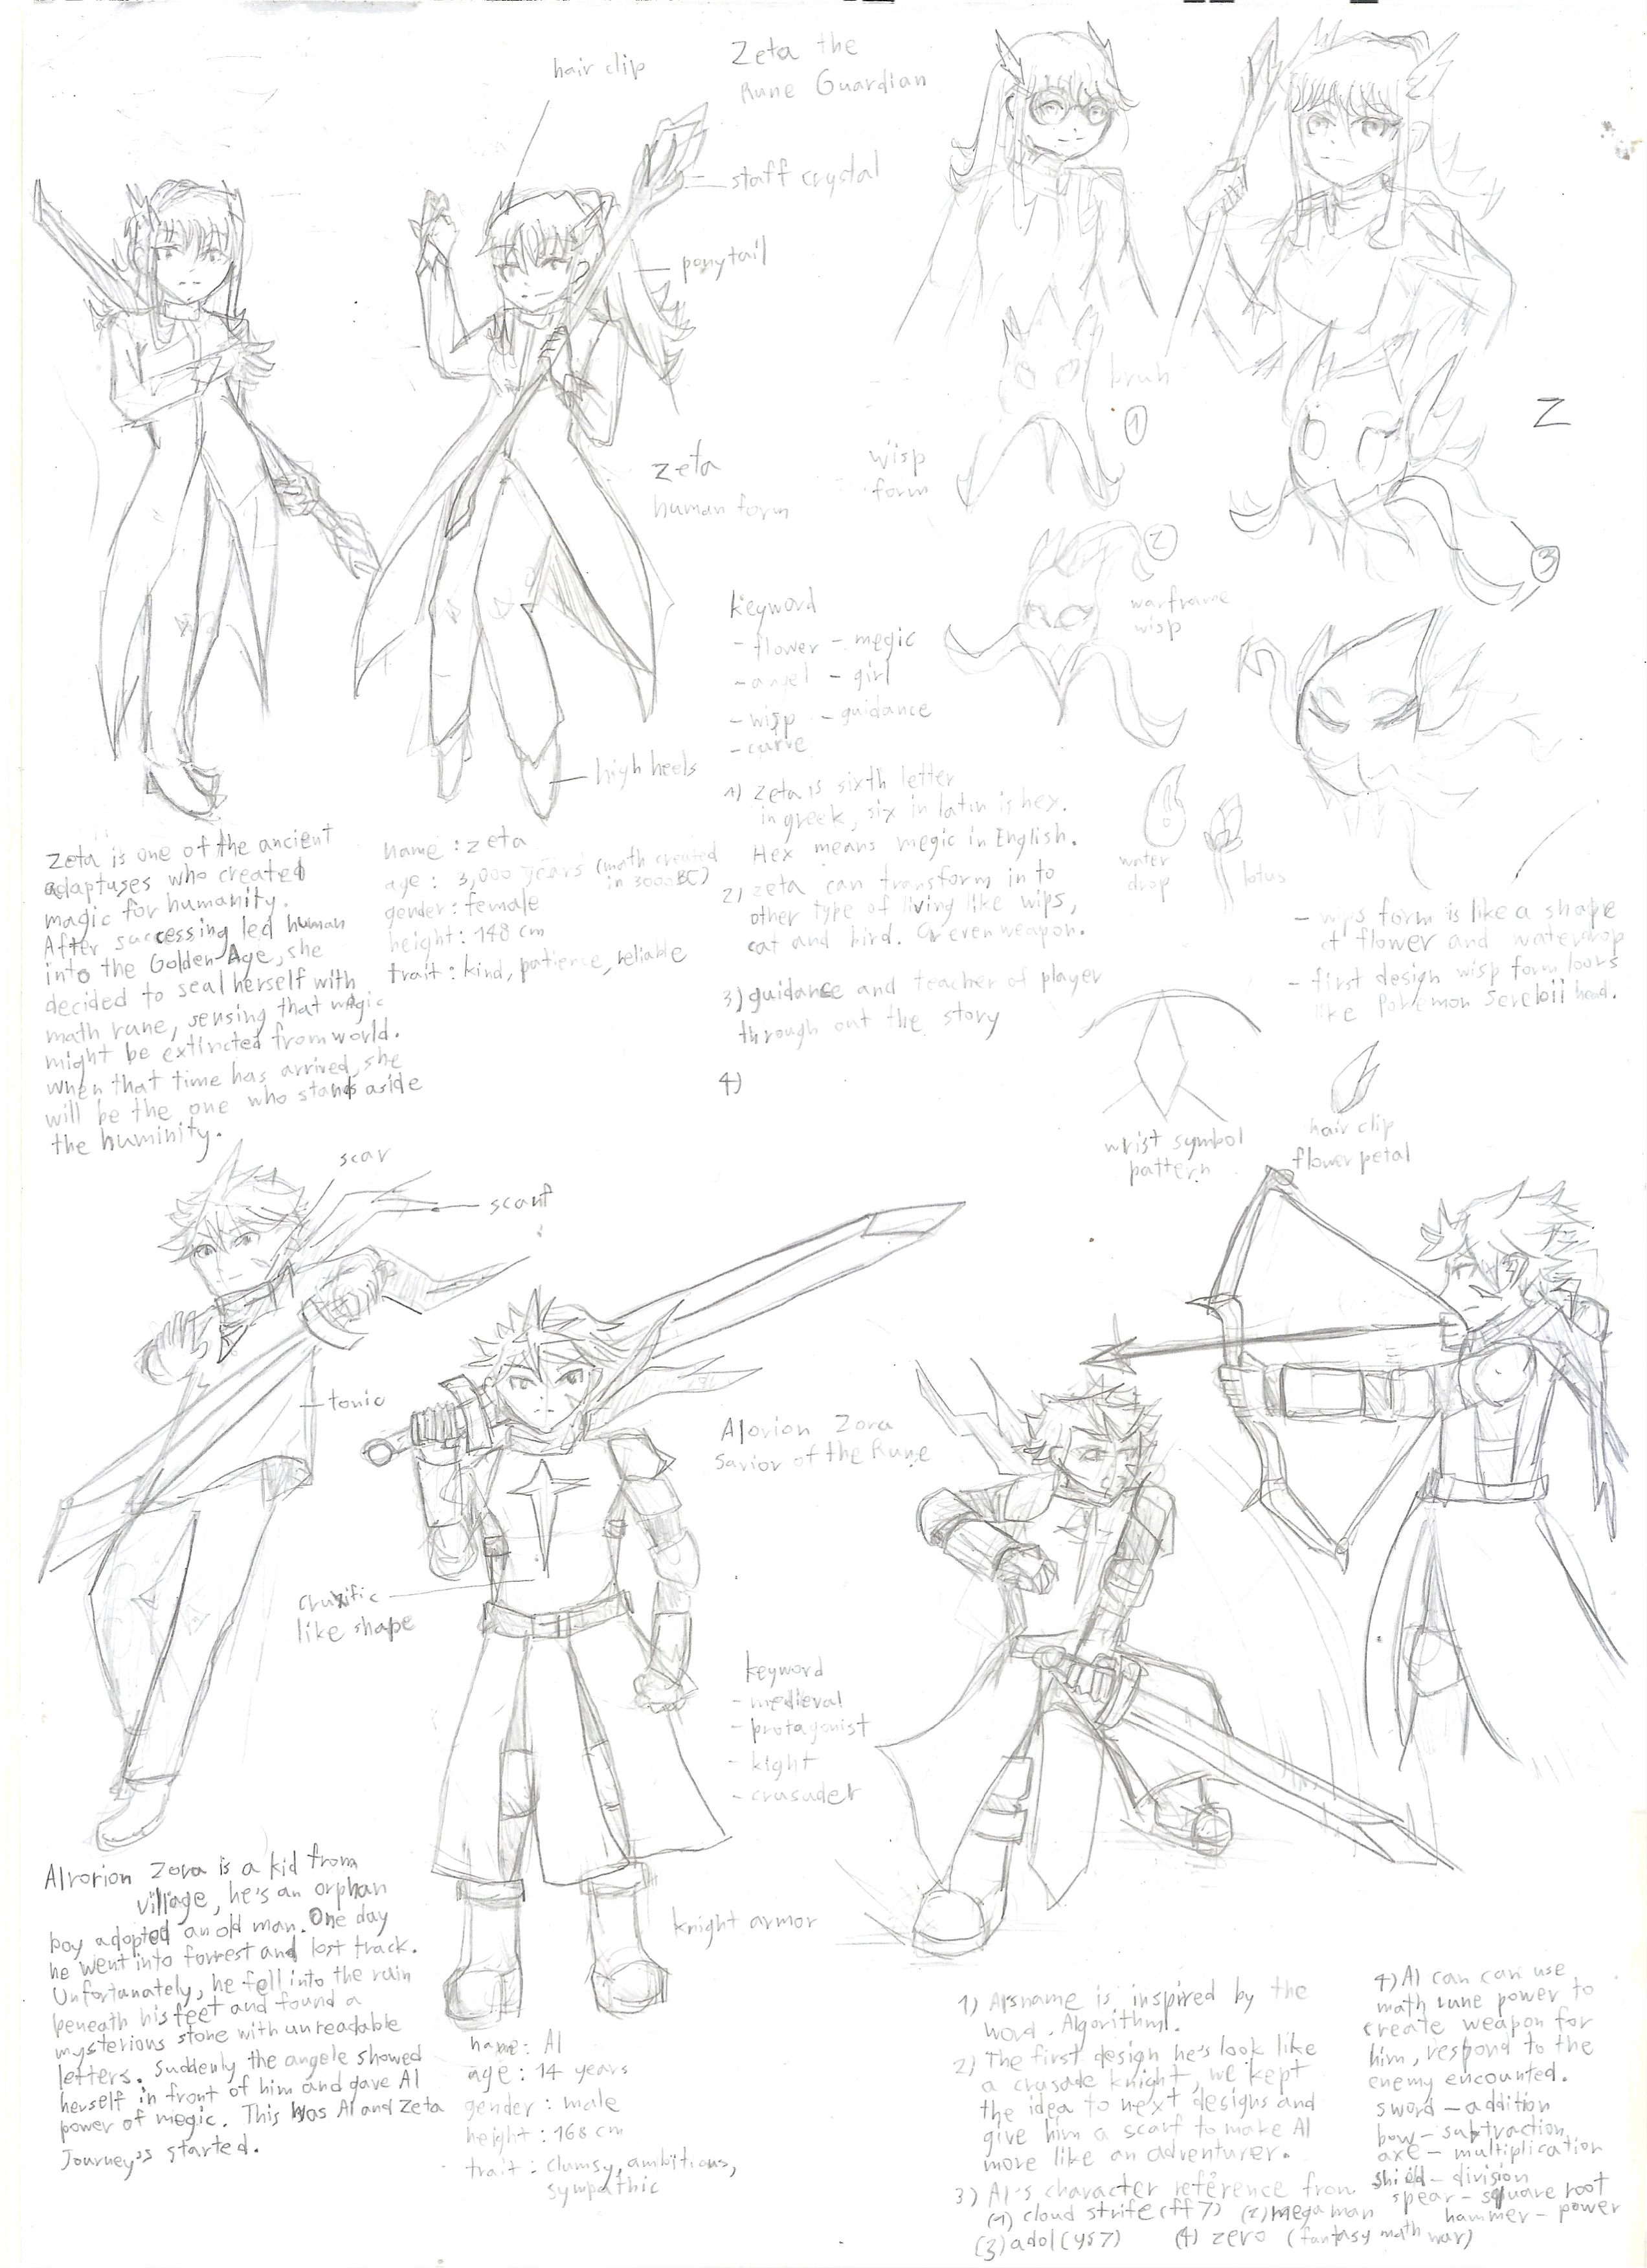 hair clip
Zeta the
Rune Guardian
staff crystal
ponytail
bruh
1
Z
wisp
form
zeta
human form
2
3
warframe
wisp
keyword
- flower - megic
- angel - girl
- wisp - guidance
- curve
high heels
1) Zeta is sixth letter
in greek, six in latin is hex.
Hex means megic in English.
2) zeta can transform in to
other type of living like wips,
cat and bird. Or even weapon.
3) guidance and teacher of player
through out the story
4)
water
drop
lotus
- wips form is like a shape
of flower and waterdrop
- first design wisp form loors
like Pokemon Serebii head.
wrist symbol
pattern
hair clip
flower petal
Zeta is one of the ancient
adaptuses who created
magic for humanity.
After successing led human
into the Golden Age, she
decided to seal herself with
math rune, sensing that magic
might be extincted from world.
when that time has arrived, she
will be the one who stands aside
the huminity.
name : zeta
age : 3,000 years (math created
in 3000BC)
gender : female
height : 148 cm
trait : kind, patience, reliable
scar
scarf
tonic
Alorion Zora
Savior of the Rune
cruxific
like shape
keyword
- medieval
- protagonist
- kight
- crusader
knight armor
Alrorion Zora is a kid from
village, he's an orphan
boy adopted an old man. One day
he went into forrest and lost track.
Unfortunately, he fell into the ruin
beneath his feet and found a
mysterious stone with unreadable
letters. Suddenly the angele showed
herself in front of him and gave Al
power of megic. This was Al and Zeta
Journey's started.
name : Al
age : 14 years
gender : male
height : 168 cm
trait : clumsy, ambitious,
sympathic
1) Al's name is inspired by the
word, Algorithm.
2) The first design he's look like
a crusade knight, we kept
the idea to next designs and
give him a scarf to make Al
more like an adventurer.
3) Al's character reference from
(1) cloud strife (ff7) (2) mega man
(3) adol (ys7) (4) zero (fantasy math war)
4) Al can can use
math rune power to
create weapon for
him, respond to the
enemy encounted.
sword - addition
bow - subtraction
axe - multiplication
shield - division
spear - square root
hammer - power